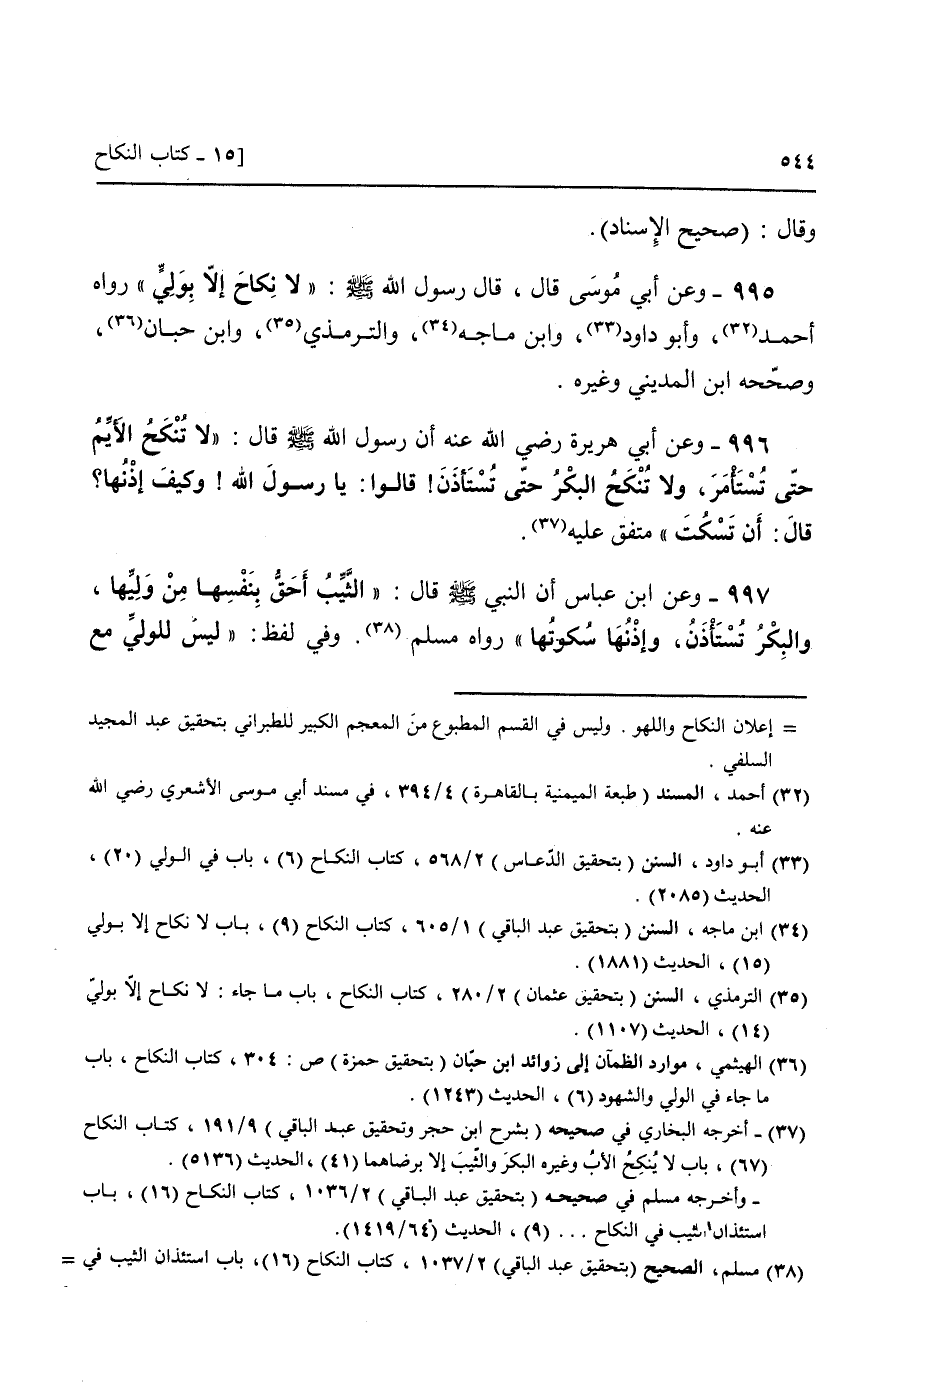 ٥٤٤ [١٥ ـ كتاب النكاح
وقال : (صحيح الإسناد).
٩٩٥ ـ وعن أبي مُوسَى قال ، قال رسول الله ﷺ : « لا نِكاحَ إلّا بِوَلِيٍّ » رواه
أحمـد(٣٢)، وأبو داود(٣٣)، وابن مـاجـه(٣٤)، والتـرمـذي(٣٥)، وابن حبـان(٣٦)،
وصحّحه ابن المديني وغيره .
٩٩٦ ـ وعن أبي هريرة رضي الله عنه أن رسول الله ﷺ قال : «لا تُنْكَحُ الأَيِّمُ
حتّى تُسْتَأْمَرَ، ولا تُنْكَحُ البكْرُ حتّى تُسْتَأذَنَ! قالـوا: يا رسـولَ الله ! وكيفَ إذْنُها؟
قالَ: أَن تَسْكُتَ » متفق عليه(٣٧).
٩٩٧ ـ وعن ابن عباس أن النبي ﷺ قال : « الثَّيِّبُ أَحَقُّ بِنَفْسِهـا مِنْ وَلِيِّها ،
والبِكْرُ تُسْتَأْذَنُ، وإذْنُهَا سُكوتُها » رواه مسلم (٣٨). وفي لفظ: « ليسَ للوليِّ مع
= إعلان النكاح واللهو . وليس في القسم المطبوع من المعجم الكبير للطبراني بتحقيق عبد المجيد
السلفي .
(٣٢) أحمد ، المسند ( طبعة الميمنية بـالقاهـرة ) ٣٩٤/٤ ، في مسند أبي مـوسى الأشعري رضي الله
عنه .
(٣٣) أبـو داود ، السنن ( بتحقيق الدّعـاس ) ٥٦٨/٢ ، كتاب النكـاح (٦) ، باب في الـولي (٢٠) ،
الحديث (٢٠٨٥) .
(٣٤) ابن ماجه ، السنن ( بتحقيق عبد الباقي ) ٦٠٥/١ ، كتاب النكاح (٩) ، بـاب لا نكاح إلا بـولي
(١٥) ، الحديث (١٨٨١) .
(٣٥) الترمذي ، السنن ( بتحقيق عثمان ) ٢٨٠/٢ ، كتاب النكاح ، باب مـا جاء : لا نكـاح إلّا بوليّ
(١٤) ، الحديث (١١٠٧) .
(٣٦) الهيثمي ، موارد الظمآن إلى زوائد ابن حبّان ( بتحقيق حمزة ) ص : ٣٠٤ ، كتاب النكاح ، باب
ما جاء في الولي والشهود (٦) ، الحديث (١٢٤٣) .
(٣٧) ـ أخرجه البخاري في صحيحه ( بشرح ابن حجر وتحقيق عبـد الباقي ) ١٩١/٩ ، كتـاب النكاح
(٦٧) ، باب لا يُنكِحُ الأبُ وغيره البكرَ والثَّيبَ إلا برضاهما (٤١) ،الحديث (٥١٣٦) .
ـ وأخـرجه مسلم في صحيحـه ( بتحقيق عبد البـاقي ) ١٠٣٦/٢ ، كتاب النكـاح (١٦) ، بـاب
استئذان الثيب في النكاح ... (٩) ، الحديث (١٤١٩/٦٤).
(٣٨) مسلم، الصحيح (بتحقيق عبد الباقي) ١٠٣٧/٢ ، كتاب النكاح (١٦)، باب استئذان الثيب في =